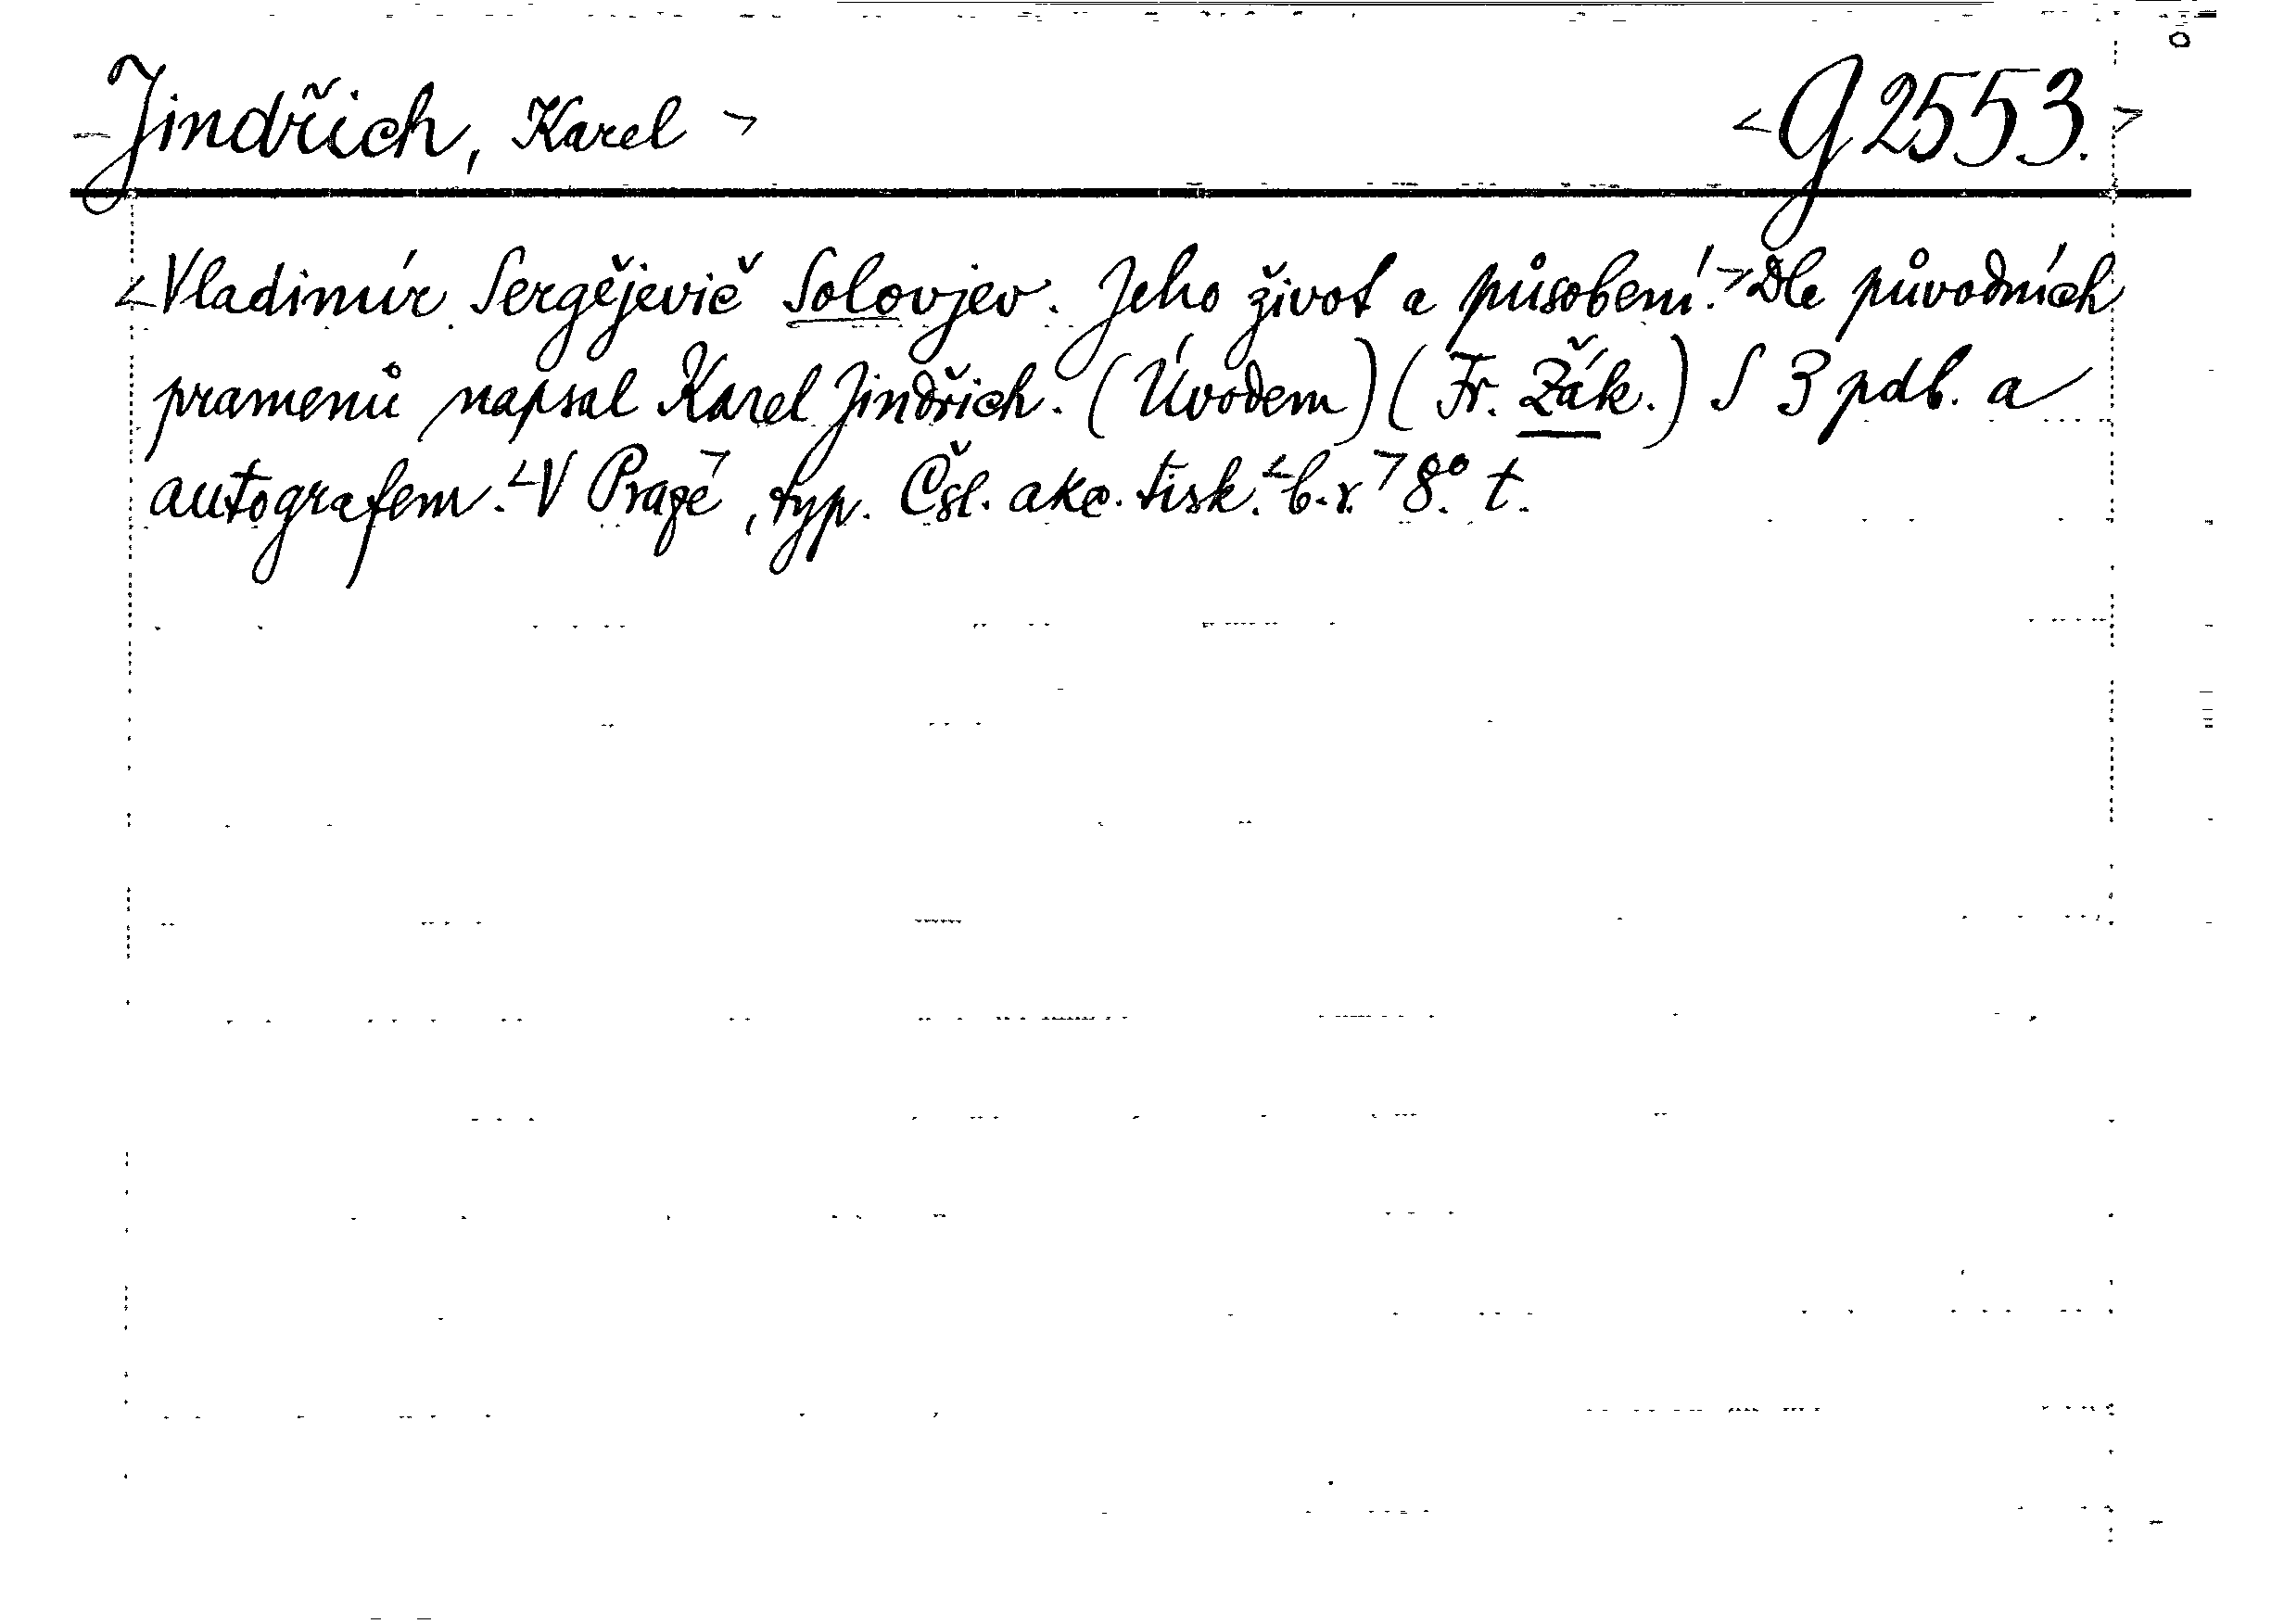 Jindřich, Karel > <G 2553.>
<Vladimír Sergějevič Solovjev. Jeho život a působení.> Dle původních
pramenů napsal Karel Jindřich. (Úvodem) (Fr. Žák.) S 3 pdb. a
autografem. <V Praze>, typ. Čsl. akc. tisk. <b. r.> 8° t.